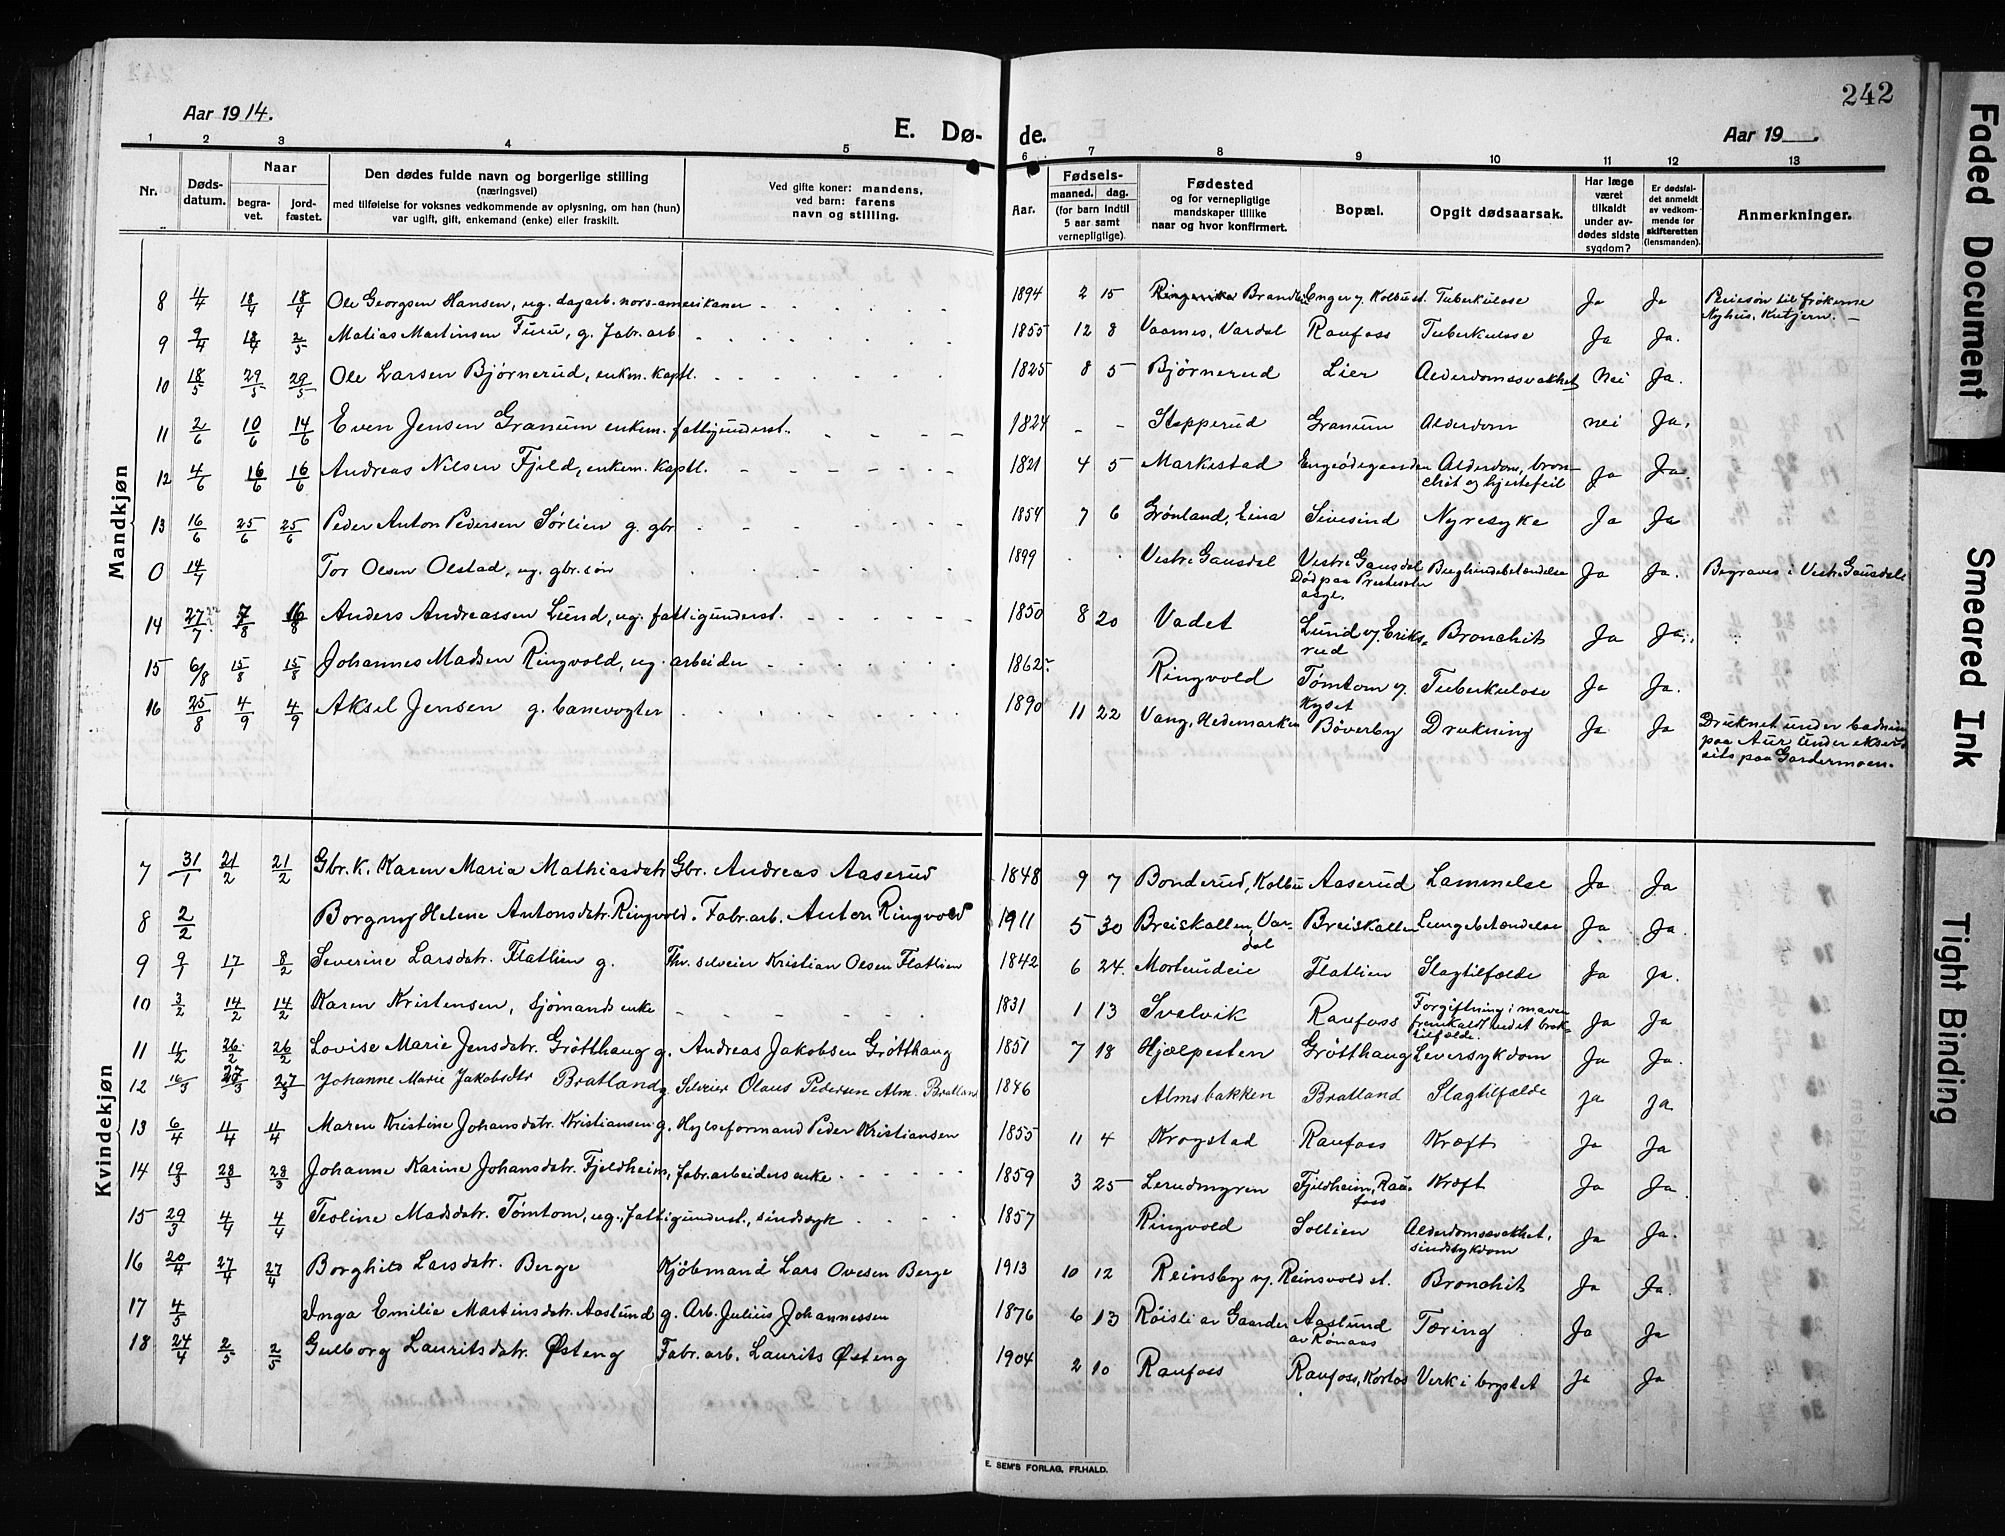 242
Aar 1914.
E. Dø-
de.
Aar 19
1 2 3 4 5 6 7 8 9 10 11 12 13
Nr.
Døds-
datum.
Naar
begra-
vet.
jord-
fæstet.
Den dødes fulde navn og borgerlige stilling
(næringsvei)
med tilføielse for voksnes vedkommende av oplysning, om han (hun)
var ugift, gift, enkemand (enke) eller fraskilt.
Ved gifte koner: mandens,
ved barn: farens
navn og stilling.
Aar.
Fødsels-
maaned. dag.
(for barn indtil
5 aar samt
vernepligtige).
Fødested
og for vernepligtige
mandskaper tillike
naar og hvor konfirmert.
Bopæl.
Opgit dødsaarsak.
Har læge
været
tilkaldt
under av-
dødes sidste
sygdom?
Er dødsfal-
det anmeldt
av vedkom-
mende for
skifteretten
(lensmanden).
Anmerkninger.
Mandkjøn
8 11/4 18/4 18/4 Ole Georgsen Hansen, ug. dagarb. nors-amerikaner 1894 2 15 Ringerike Brandbu Enger v. Kolbu st. Tuberkulose Ja Ja Pleiesøn til frøkerne
Nyhus, Kutjern.
9 9/4 18/4 2/5 Matias Martinsen Furu, g. fabr. arb. 1855 12 8 Vaarnes, Vardal Raufoss Tuberkulose Ja Ja.
10 18/5 29/5 29/5 Ole Larsen Bjørnerud, enkem. kaptl. 1825 8 5 Bjørnerud Lier Alderdomssvakhet nei Ja.
11 2/6 10/6 14/6 Even Jensen Granum enkem. fattigunderst. 1824 - - Stepperud Granum Alderdom nei Ja.
12 4/6 16/6 16/6 Andreas Nilsen Fjeld, enkem. kaptl. 1821 4 5 Markestad Engeødegaarden Alderdom, bron-
chit og hjertefeil Ja Ja.
13 16/6 25/6 25/6 Peder Anton Pedersen Sørlien g. gbr 1854 7 6 Grønland, Eina Sivesind Nyresyke Ja Ja
0 14/7 Tor Olsen Olstad, ug. gbr. søn 1899 Vestre Gausdal Vestre Gausdal
Død paa Presteseter
asyl. Bughindebetændelse Ja Ja. Begraves i Vestre Gausdal
14 27/7 7/8 16/8 Anders Andreassen Lund, ug. fattigunderst. 1850 8 20 Vadet Lund v/ Eriks-
rud Bronchit Ja Ja.
15 6/8 15/8 15/8 Johannes Madsen Ringvold, ug. arbeider 1862 Ringvold Tømtom v/
Kyset Tuberkulose Ja Ja.
16 25/8 4/9 4/9 Aksel Jensen g. banevogter 1890 11 22 Vang, Hedemarken Bøverby Drukning Ja Ja Druknet under badning
paa Aur under ekser-
sits paa Gardermoen.
Kvindekjøn
7 31/1 21/2 21/2 Gbr. k. Karen Maria Mathiasdatr Gbr. Andreas Aaserud 1848 9 7 Bonderud, Kolbu Aaserud Lammelse Ja Ja
8 2/2 Borgny Helene Antonsdatr. Ringvold. Fabr. arb. Anton Ringvold 1911 5 30 Breiskallen, Var-
dal Breiskallen Lungebetændelse Ja Ja.
9 9/1 17/1 8/2 Severine Larsdatr. Flatlien g. Fhv. selveier Kristian Olsen Flatlien 1842 6 24 Morterudeie Flatlien Slagtilfælde Ja Ja.
10 3/2 14/2 14/2 Karen Kristensen, sjømandsenke 1831 1 13 Svelvik Raufoss Forgiftning i maven
fremkaldt ved et brok-
tilfælde. Ja Ja
11 11/2 26/2 26/2 Lovise Marie Jensdatr. Grøtthaug g. Andreas Jakobsen Grøtthaug 1851 7 18 Hjælpesten Grøtthaug Leversykdom Ja Ja.
12 16/3 27/3 27/3 Johanne Marie Jakobsdtr Bratland g. Selveier Olaus Pedersen Alm. Bratland 1846 Almsbakken Bratland Slagtilfælde ja ja.
13 6/4 11/4 11/4 Maren Kristine Johansdatr. Kristiansen g. Hylseformand Peder Kristiansen 1855 11 4 Krogstad Raufoss Kræft Ja Ja
14 19/3 28/3 28/3 Johanne Karine Johansdatr. Fjeldheim, fabr. arbeiders enke 1859 3 25 Lerudmyren Fjeldheim, Rau-
foss Kræft Ja Ja.
15 29/3 4/4 4/4 Teoline Madsdatr. Tømtom, ug. fattigunderst., sindssyk 1857 Ringvold Sollien Alderdomssvakhet,
sindssykdom Ja Ja.
16 20/4 27/4 27/4 Borghild Larsdatr. Berge Kjøbmand Lars Ovesen Berge 1913 10 12 Reinsby v/ Reinsvold st. Bronchit Ja Ja.
17 4/5 Inga Emilie Martinsdatr. Aaslund g. Arb. Julius Johannessen 1876 6 13 Røisli av Gaarder Aaslund
av Rønaas Tæring Ja Ja
18 24/4 2/5 2/5 Gulborg Lauritsdatr. Østeng Fabr. arb. Laurits Østeng 1904 2 10 Raufoss Raufoss, Kortos Verk i brystet Ja Ja
E. SEM'S FORLAG, FR.HALD.
Faded Document
Smeared Ink
Tight Binding